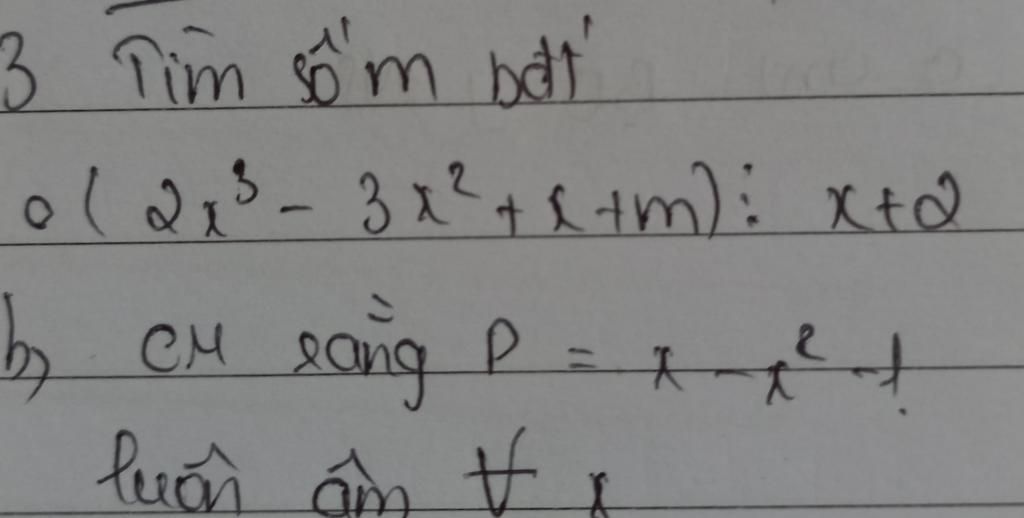 3 Tìm số m bđt
a ( 2x³ - 3x² + x + m) ⋮ x+2
b, CM rằng P = x - x² - 1
luôn âm ∀ x